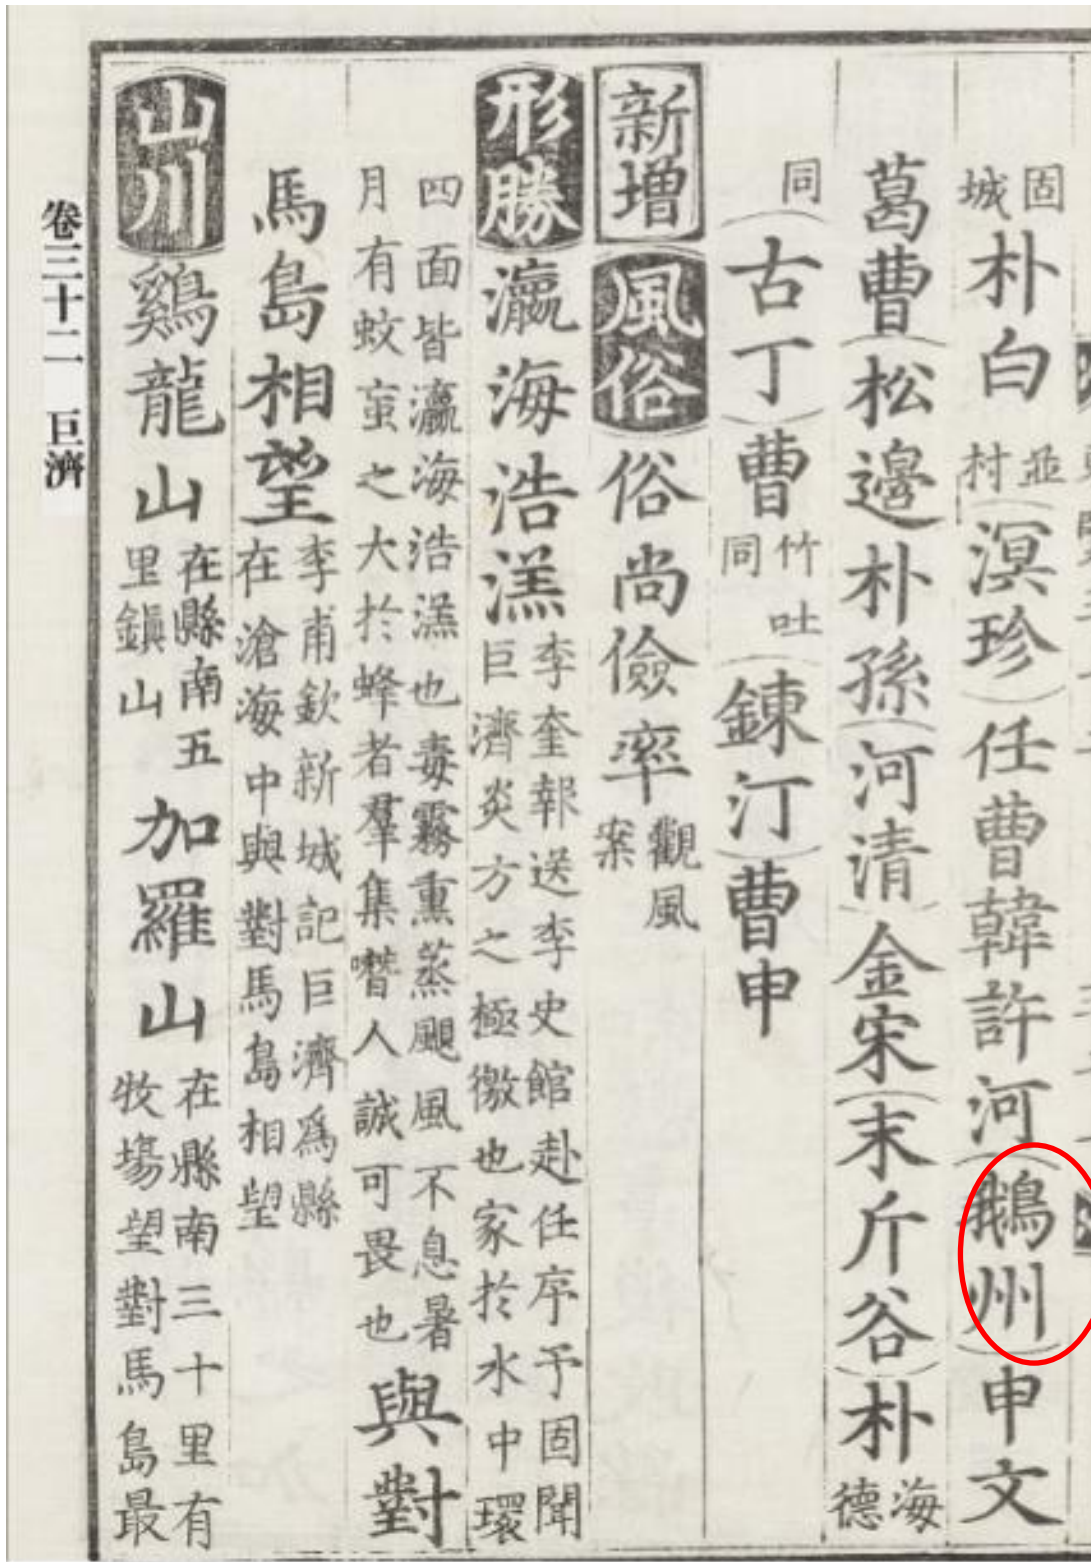 固城朴白並村(溟珍)任曹韓許河(鵝州)申文
葛曹(松邊)朴孫(河清)金宋(末斤谷)朴海德
同(古丁)曹竹吐同(鍊汀)曹申
新增 風俗 俗尚儉率觀風案
形勝 瀛海浩渼李奎報送李史館赴任序予固聞巨濟炎方之極徼也家於水中環
四面皆瀛海浩渼也毒霧熏蒸颶風不息暑月有蚊䖟之大於蜂者羣集噆人誠可畏也與對
馬島相望李甫欽新城記巨濟爲縣在滄海中與對馬島相望
山川 鷄龍山在縣南五里鎭山加羅山在縣南三十里有牧場望對馬島最
卷三十二 巨濟